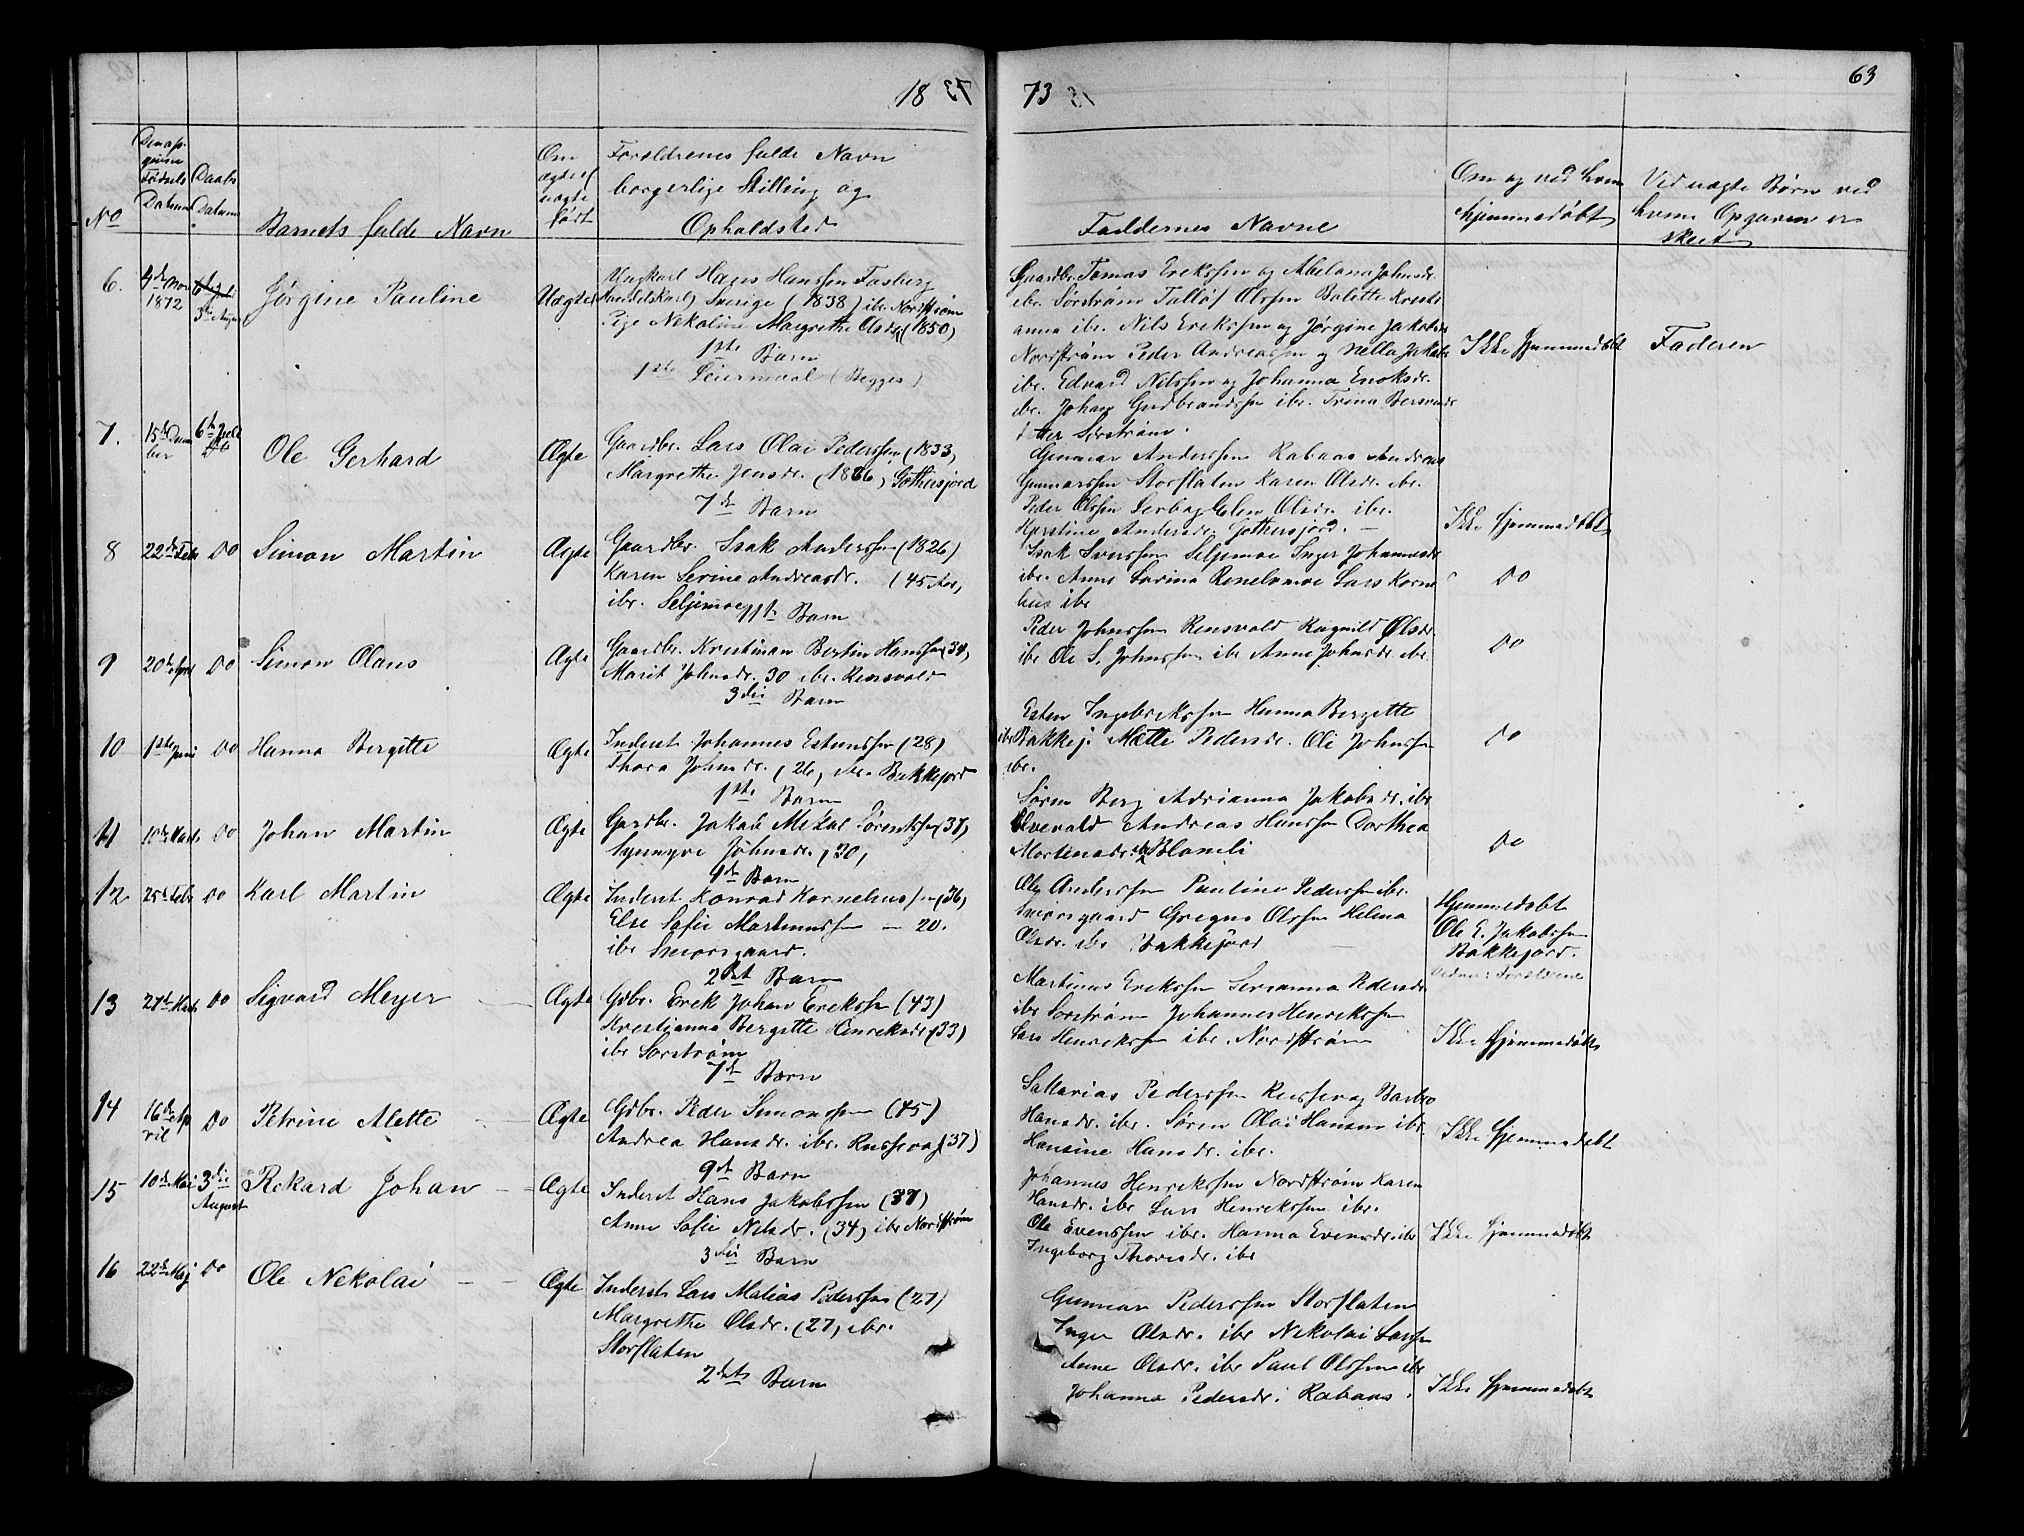 18 73
63
No
Fødsels
Datum
Daabs
Datum
Barnets fulde Navn
Om
ægte el
uægte
født
Forældrenes fulde Navn
borgerlige Stilling og
Opholdsted
Faddernes Navne
Om og ved hvem
hjemmedøbt
Ved uægte Børn ved
hvem Opgaven er
skeet
6.
1872
3die Aug
Jørgine Pauline
Uægte
Ungkarl Hans Hanssen Fosberg
Handelskarl Sverige (1838) ibr. Nordstrøm
Pige Nekoline Margrethe Olsdr (1850)
1ste Barn
1ste Leiermaal (Begges)
Gaardbr. Tomas Erekssen og Abelona Johnsdr.
ibr. Sørstrøm Tolløf Olssen Bolette Kristi
anna ibr. Nils Erekssen og Jørgine Jakobsdr
Nordstrøm Peder Andreassen og Nella Jakobs
ibr. Edvard Nilssen og Johanna Enoksdr.
ibr. Johan Gudbrandssen ibr. Trina Bersvends
datter Sørstrøm.
Ikke Hjemmedøbt
Faderen
7.
15de Decem
ber
6te Juli
Ole Gerhard
Ægte
Gaardbr. Lars Olai Pederssen (1833)
Margrethe Jensdr. (1836) Gothersjord
7de Barn
Gunnar Anderssen Rabaas Andreas
Gunnarssen Storflaten Karen Olsdr. ibr.
Peder Olssen Olsdr. ibr.
Andersdr. Gothersjord. —
Ikke Hjemmedøbt
8
22de Febr
Do
Simon Martin
Ægte
Gaardbr. Isak Anderssen (1826)
Karen Serine Andreasdr. (45 Aar)
ibr. Seljemoe 11te Barn
Isak Iverssen Seljemoe Inger Johannesdr
ibr. Anne Lars Korne
lius ibr
Do
9
20de April
Do
Simon Olaus
Ægte
Gaardbr. Kristinan Bertin Hanssen (34)
Marit Johnsdr. 30 ibr. Rensvold
3die Barn
Peder Johnssen Rensvold Ragnild Olsdr.
ibr Ole S. Johnssen ibr Anne Johnsdr ibr.
Do
10
1ste Juni
Do
Hanna Bergitte
Ægte
Inderst Johannes Estenssen (28)
Thora Johnsdr. (26) ibr. Bakkejord
1ste Barn
Esten Ingebrektssen Hanna Bergette
ibr Bakkej. Mette Pedersdr. Ole Johnssen
ibr.
Do
11
10de Marts
Do
Johan Martin
Ægte
Gardbr. Jakob Mekal Sørenssen (37)
Synnyve Johnsdr. (30)
4de Barn
Søren Berg Adrianna Jakobsdr. ibr
Andreas Hanssen Dorthea
Mortensdr. Blomli
Do
12
25de Febr
Do
Karl Martin
Ægte
Inderst Konrad Korneliussen (36)
Else Sofie Martinussen — 20.
ibr
2det Barn
Ole Anderssen Pauline Pederssen ibr.
Gregus Olssen Helena
Olsdr. ibr Bakkejord
Hjemmedøbt
Ole E. Jakobssen
Bakkejord.
Vidner: Forældrene
13
27de Marts
Do
Sigvard Meyer
Ægte
Gdbr. Erek Johan Erekssen (43)
Kristianna Bergitte Henreksdr. (33)
ibr Sørstrøm
7de Barn
Martinus Erekssen Serianna Pedersdr.
ibr Sørstrøm Johannes Henrekssen
Lars Henrekssen ibr. Nordstrøm
Ikke Hjemmedøbt
14
16de Ap
ril
Do
Petrine Alette
Ægte
Gdbr. Peder Simonssen (45)
Andrea Hansdr. ibr. Russevaag (37)
9de Barn
Sakarias Pederssen Russevag Barbro
Hansdr. ibr. Søren Olai Hansen ibr.
Hansine Hansdr. ibr.
Ikke Hjemmedøbt
15
10de Mai
3die
August
Rekard Johan
Ægte
Inderst Hans Jakobssen (37)
Anne Sofie Nilsdr. (34) ibr Nordstrøm
3die Barn
Johannes Henrekssen Nordstrøm Karen
Hansdr. ibr Lars Henrekssen ibr.
Ole Evenssen ibr. Hanna Evensdr. ibr
Ingeborg Thoresdr. ibr
Ikke Hjemmedøbt
16
22de Maj
Do
Ole Nekolai
Ægte
Inderst Lars Matias Pederssen (27)
Margrethe Olsdr. (27) ibr.
Storflaten
2det Barn
Gunnar Pederssen Storflaten
Inger Olsdr. ibr Nekolai Larssen
Anne Olsdr. ibr Paul Olssen ibr
Johanna Pedersdr. Rabaas.
Ikke Hjemmedøbt